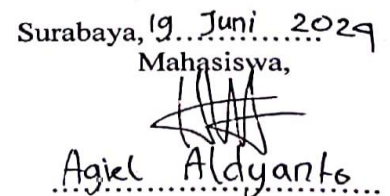 Surabaya, 19 Juni 2024
Mahasiswa,
Agiel Aldyanto